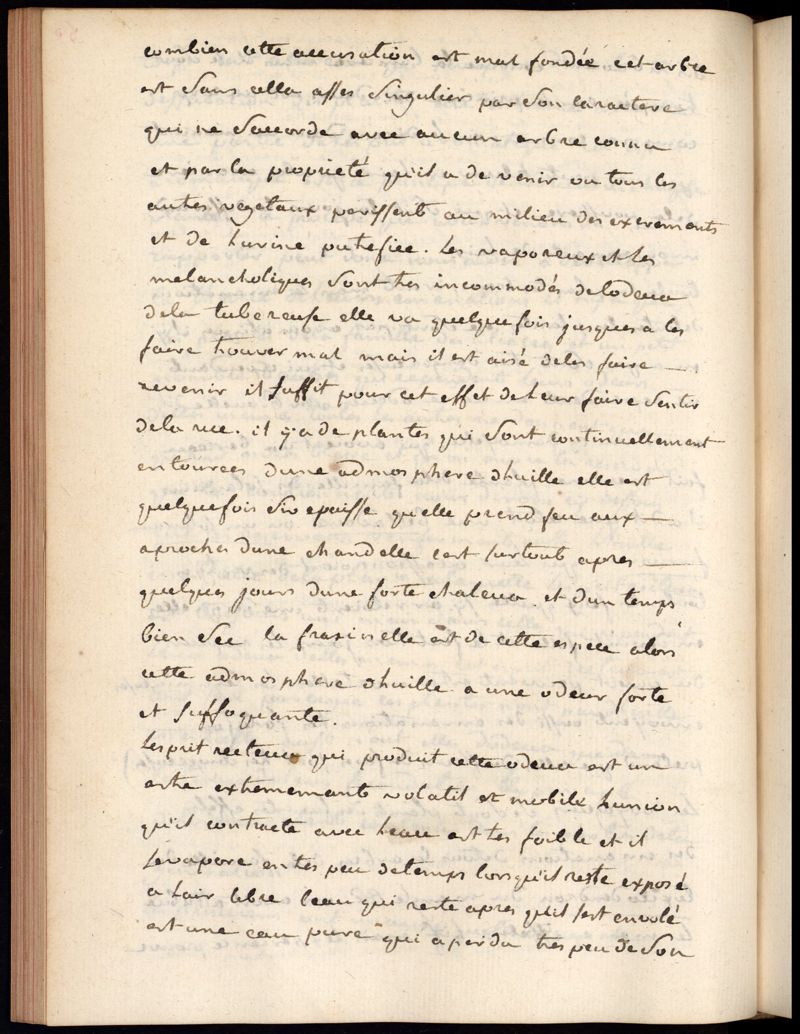 combien cette accusation est mal fondée cet arbre
est sans cella asses singulier par son caractere
qui ne saccorde avec aucun arbre connu
et par la proprieté qu'il a de venir ou tous les
autres vegetaux perissent au milieu des excrements
et de lurine putrefiee. les vaporeux et les
melancholiques sont tres incommodés de lodeur
de la tubereuse elle va quelquefois jusques a les
faire trouver mal mais il est aisé de les faire —
revenir il suffit pour cet effet de leur faire sentir
de la rue. il y a de plantes qui sont continuellement
entourees dune admosphere dhuille elle est
quelquefois si epaisse quelle prend feu aux —
aproches dune chandelle cest surtout apres —
quelques jours dune forte chaleur et dun temps
bien sec la fraxinelle est de cette espece alors
cette admosphere dhuille a une odeur forte
et suffoquante.
Lesprit recteur qui produit cette odeur est un
estre extremement volatil et mobile lunion
qu'il contracte avec leau est tres foible et il
sevapore en tres peu de temps lorsqu'il reste exposé
a lair libre leau qui reste apres qu'il sest envolé
est une eau pure qui a perdu tres peu de son